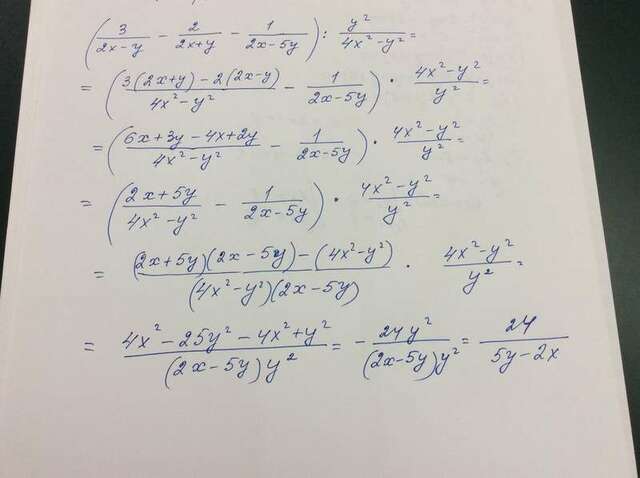 (3/(2x-y) - 2/(2x+y) - 1/(2x-5y)) : y²/(4x²-y²) =
= ((3(2x+y)-2(2x-y))/(4x²-y²) - 1/(2x-5y)) · (4x²-y²)/y² =
= ((6x+3y-4x+2y)/(4x²-y²) - 1/(2x-5y)) · (4x²-y²)/y² =
= ((2x+5y)/(4x²-y²) - 1/(2x-5y)) · (4x²-y²)/y² =
= ((2x+5y)(2x-5y)-(4x²-y²))/((4x²-y²)(2x-5y)) · (4x²-y²)/y² =
= (4x²-25y²-4x²+y²)/((2x-5y)y²) = -24y²/((2x-5y)y²) = 24/(5y-2x)